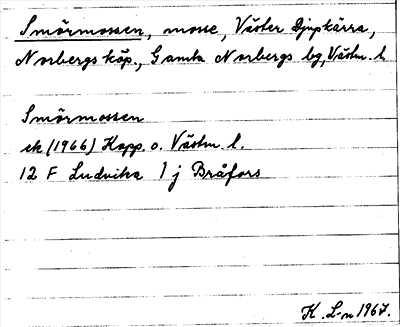 Smörmossen, mosse, Väster Djupkärra,
Norbergs köp., Gamla Norbergs bg, Västm. l.
Smörmossen
ek (1966) Kopp. o. Västm. l.
12 F Ludvika 1 j Bråfors
K. L-n 1967.